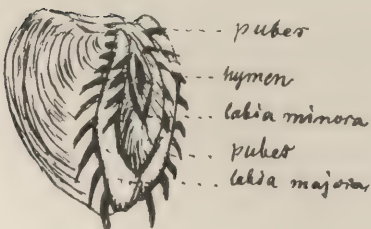 pubes
hymen
labia minora
pubes
labia majora